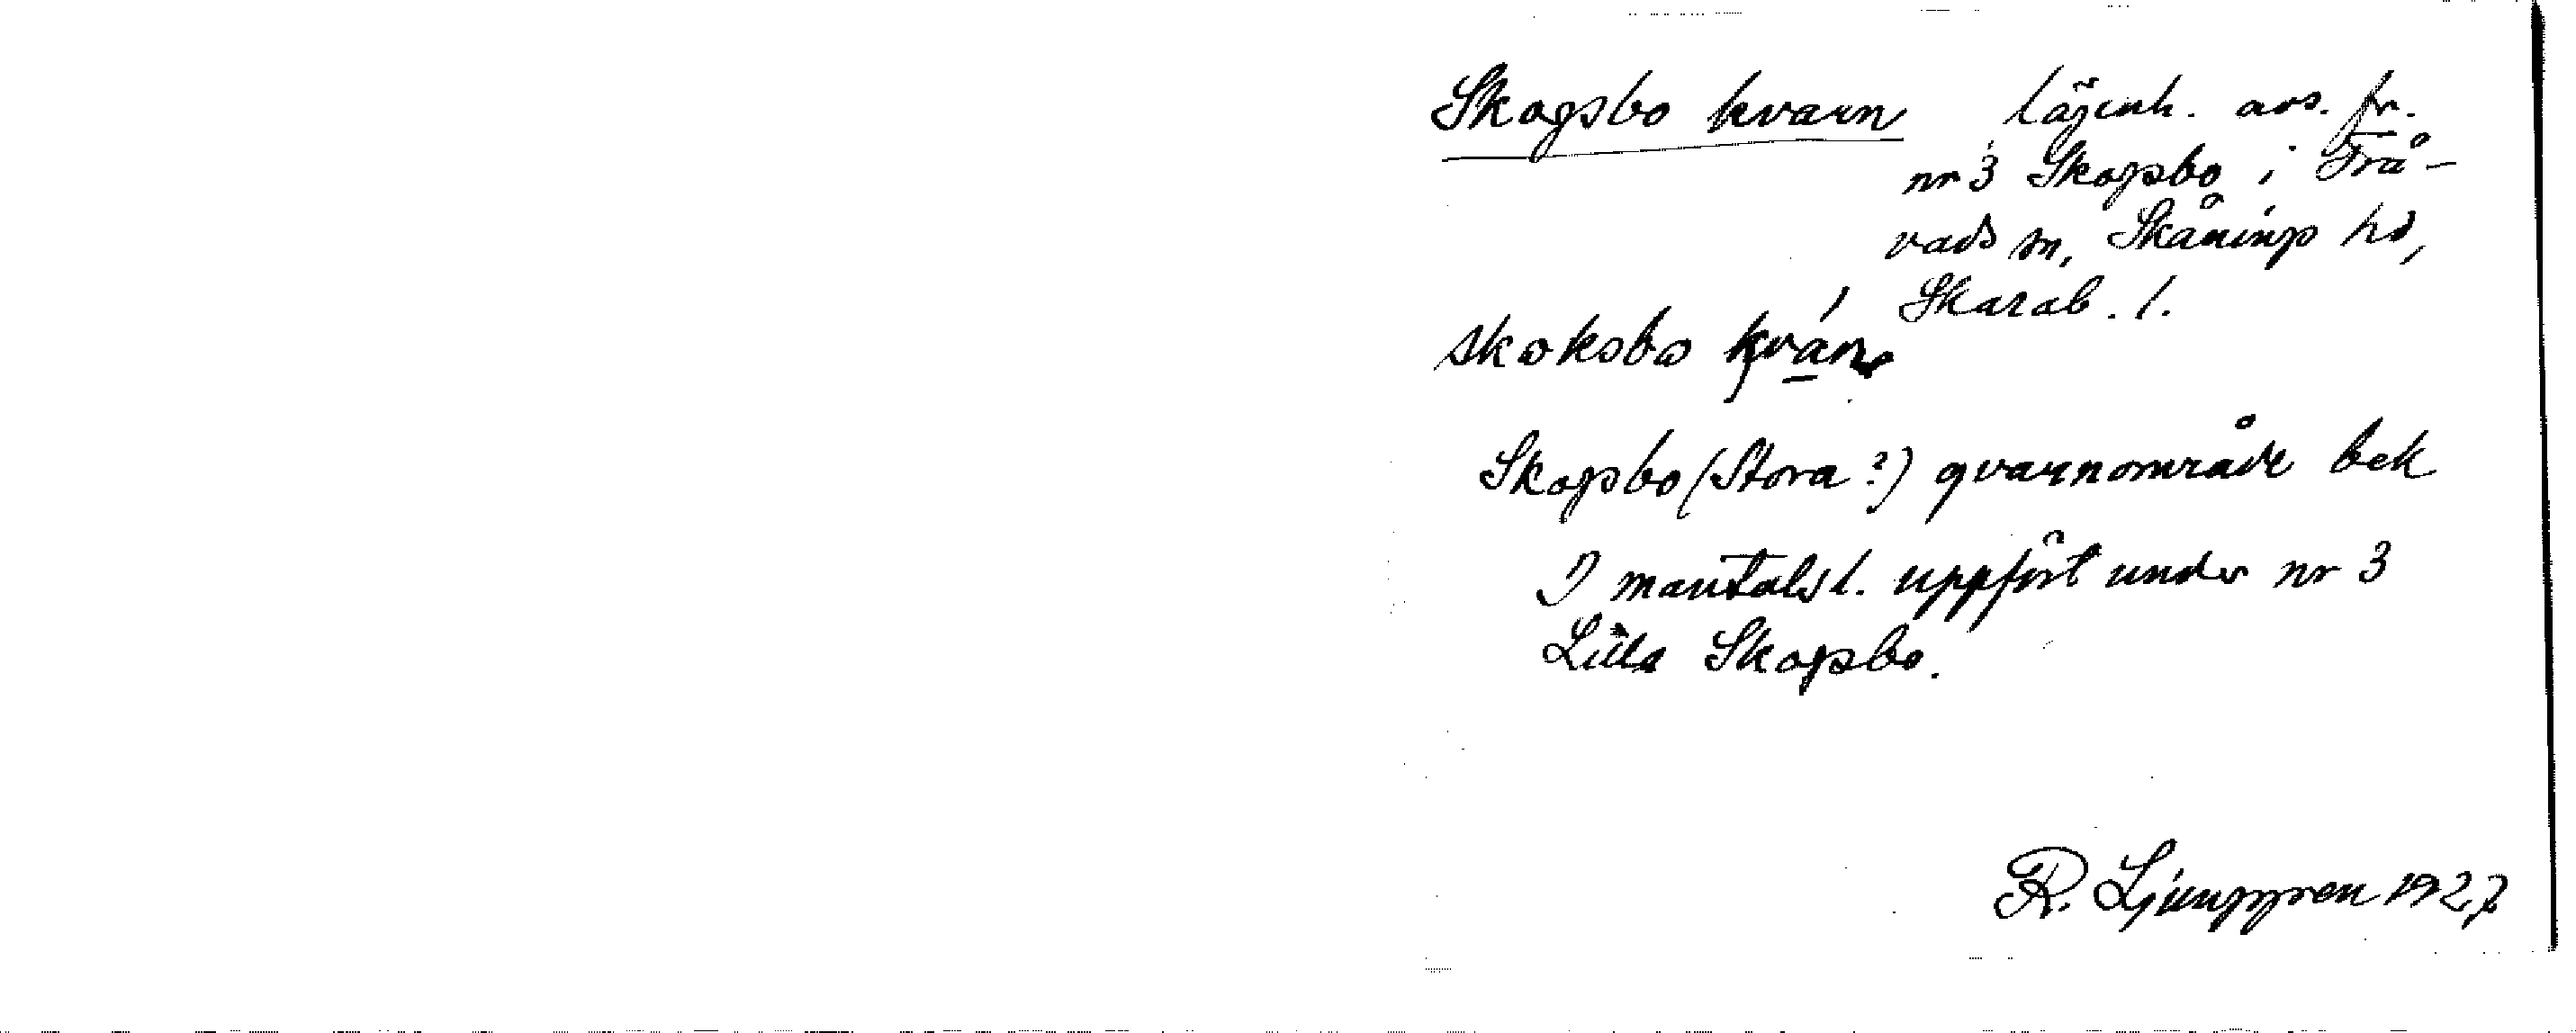 Skogsbo kvarn lägenh. avs. fr.
nr 3 Skogsbo i Trå-
vads sn, Skånings hd,
Skarab. l.
skoksbo kván
Skogsbo (Stora?) qvarnområde bek
I mantalsl. uppfört under nr 3
Lilla Skogsbo.
R. Ljunggren 1927